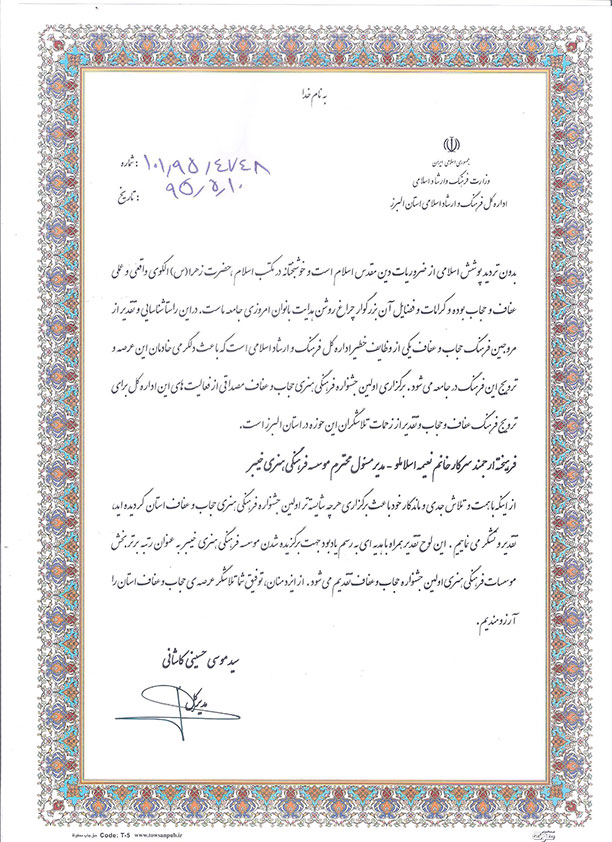 به نام خدا
جمهوری اسلامی ایران
وزارت فرهنگ و ارشاد اسلامی
اداره کل فرهنگ و ارشاد اسلامی استان البرز
شماره : ۱۰۱,۹۵,۴۷۴۸
تاریخ : ۹۵,۵,۱۰
بدون تردید پوشش اسلامی از ضروریات دین مقدس اسلام است و خوشبختانه در مکتب اسلام ، حضرت زهرا(س) الگوی واقعی و عملی
عفاف و حجاب بوده و کرامات و فضایل آن بزرگوار چراغ روشن هدایت بانوان امروزی جامعه ماست. در این راستا شناسایی و تقدیر از
مروجین فرهنگ حجاب و عفاف یکی از وظایف خطیر اداره کل فرهنگ و ارشاد اسلامی است که باعث دلگرمی خادمان این عرصه و
ترویج این فرهنگ در جامعه می شود . برگزاری اولین جشنواره فرهنگی هنری حجاب و عفاف مصداقی از فعالیت های این اداره کل برای
ترویج فرهنگ عفاف و حجاب و تقدیر از زحمات تلاشگران این حوزه در استان البرز است .
فرهیخته ارجمند سرکار خانم نعیمه اسلاملو - مدیر مسئول محترم موسسه فرهنگی هنری خیبر
از اینکه با همت و تلاش جدی و ماندگار خود باعث برگزاری هرچه شایسته تر اولین جشنواره فرهنگی هنری حجاب و عفاف استان گردیده اید،
تقدیر و تشکر می نماییم . این لوح تقدیر همراه با هدیه ای به رسم یادبود جهت برگزیده شدن موسسه فرهنگی هنری خیبر به عنوان رتبه برتر بخش
موسسات فرهنگی هنری اولین جشنواره حجاب و عفاف تقدیم می شود . از ایزد منان ، توفیق شما تلاشگر عرصه ی حجاب و عفاف استان را
آرزومندیم .
سید موسی حسینی کاشانی
مدیر کل
حق چاپ محفوظ Code: T-5 www.towsanpub.ir